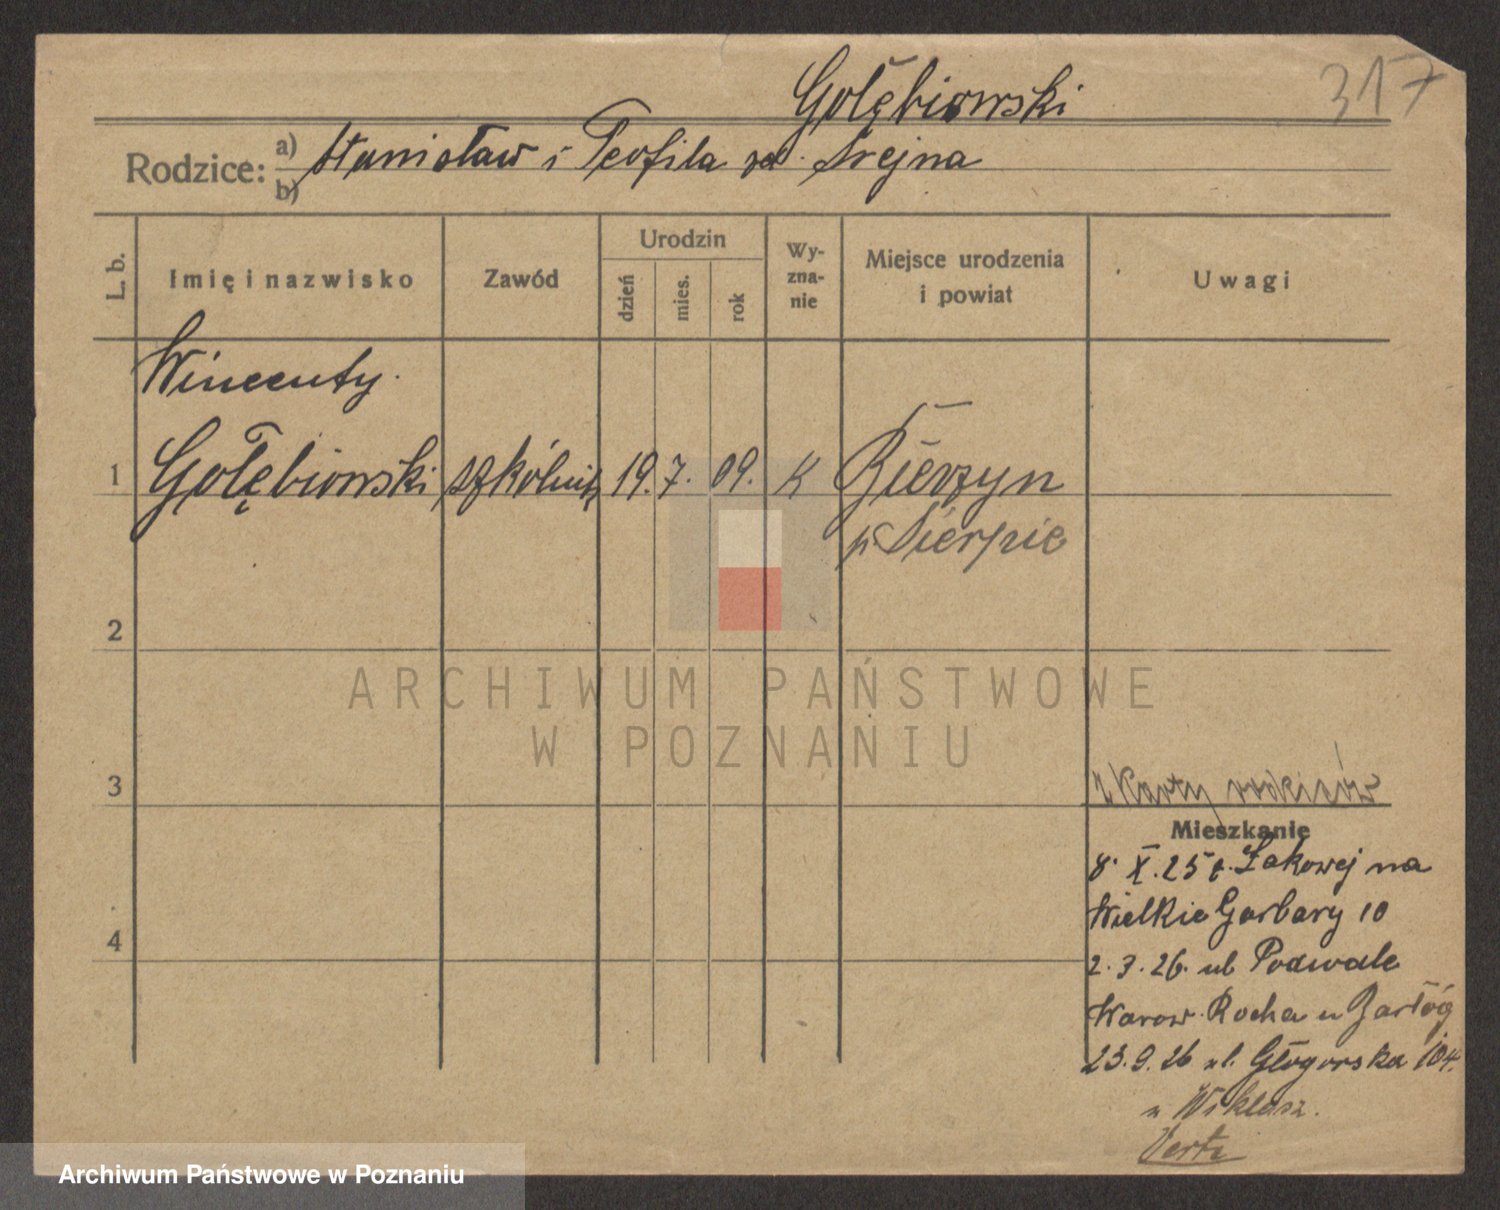 Gołębiowski
317
Rodzice: a) Stanisław i Teofila zd. Srejna
b)
L. b.
Imię i nazwisko
Zawód
Urodzin
dzień
mies.
rok
Wy-
zna-
nie
Miejsce urodzenia
i powiat
Uwagi
Wincenty
1 Gołębiowski szkólnik 19. 7. 09. K Bierzyn
p. Sierpie
2
ARCHIWUM PAŃSTWOWE
W POZNANIU
3
z Karty rodziców
Mieszkanie
8. X. 25 z Łąkowej na
Wielkie Garbary 10
4
2. 3. 26. ul Podwale
Rocha u Barłóg
23. 9. 26 ul. Głogowska 104.
u
Verte
Archiwum Państwowe w Poznaniu